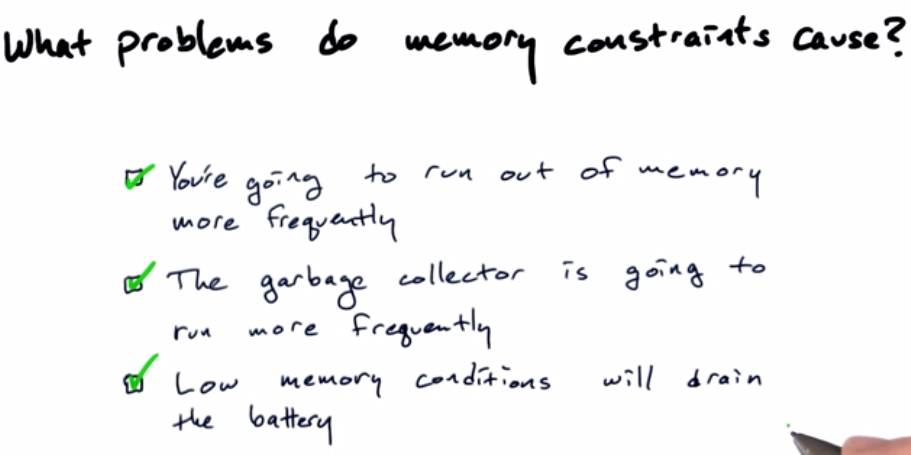 What problems do memory constraints cause?
You're going to run out of memory
more frequently
The garbage collector is going to
run more frequently
Low memory conditions will drain
the battery